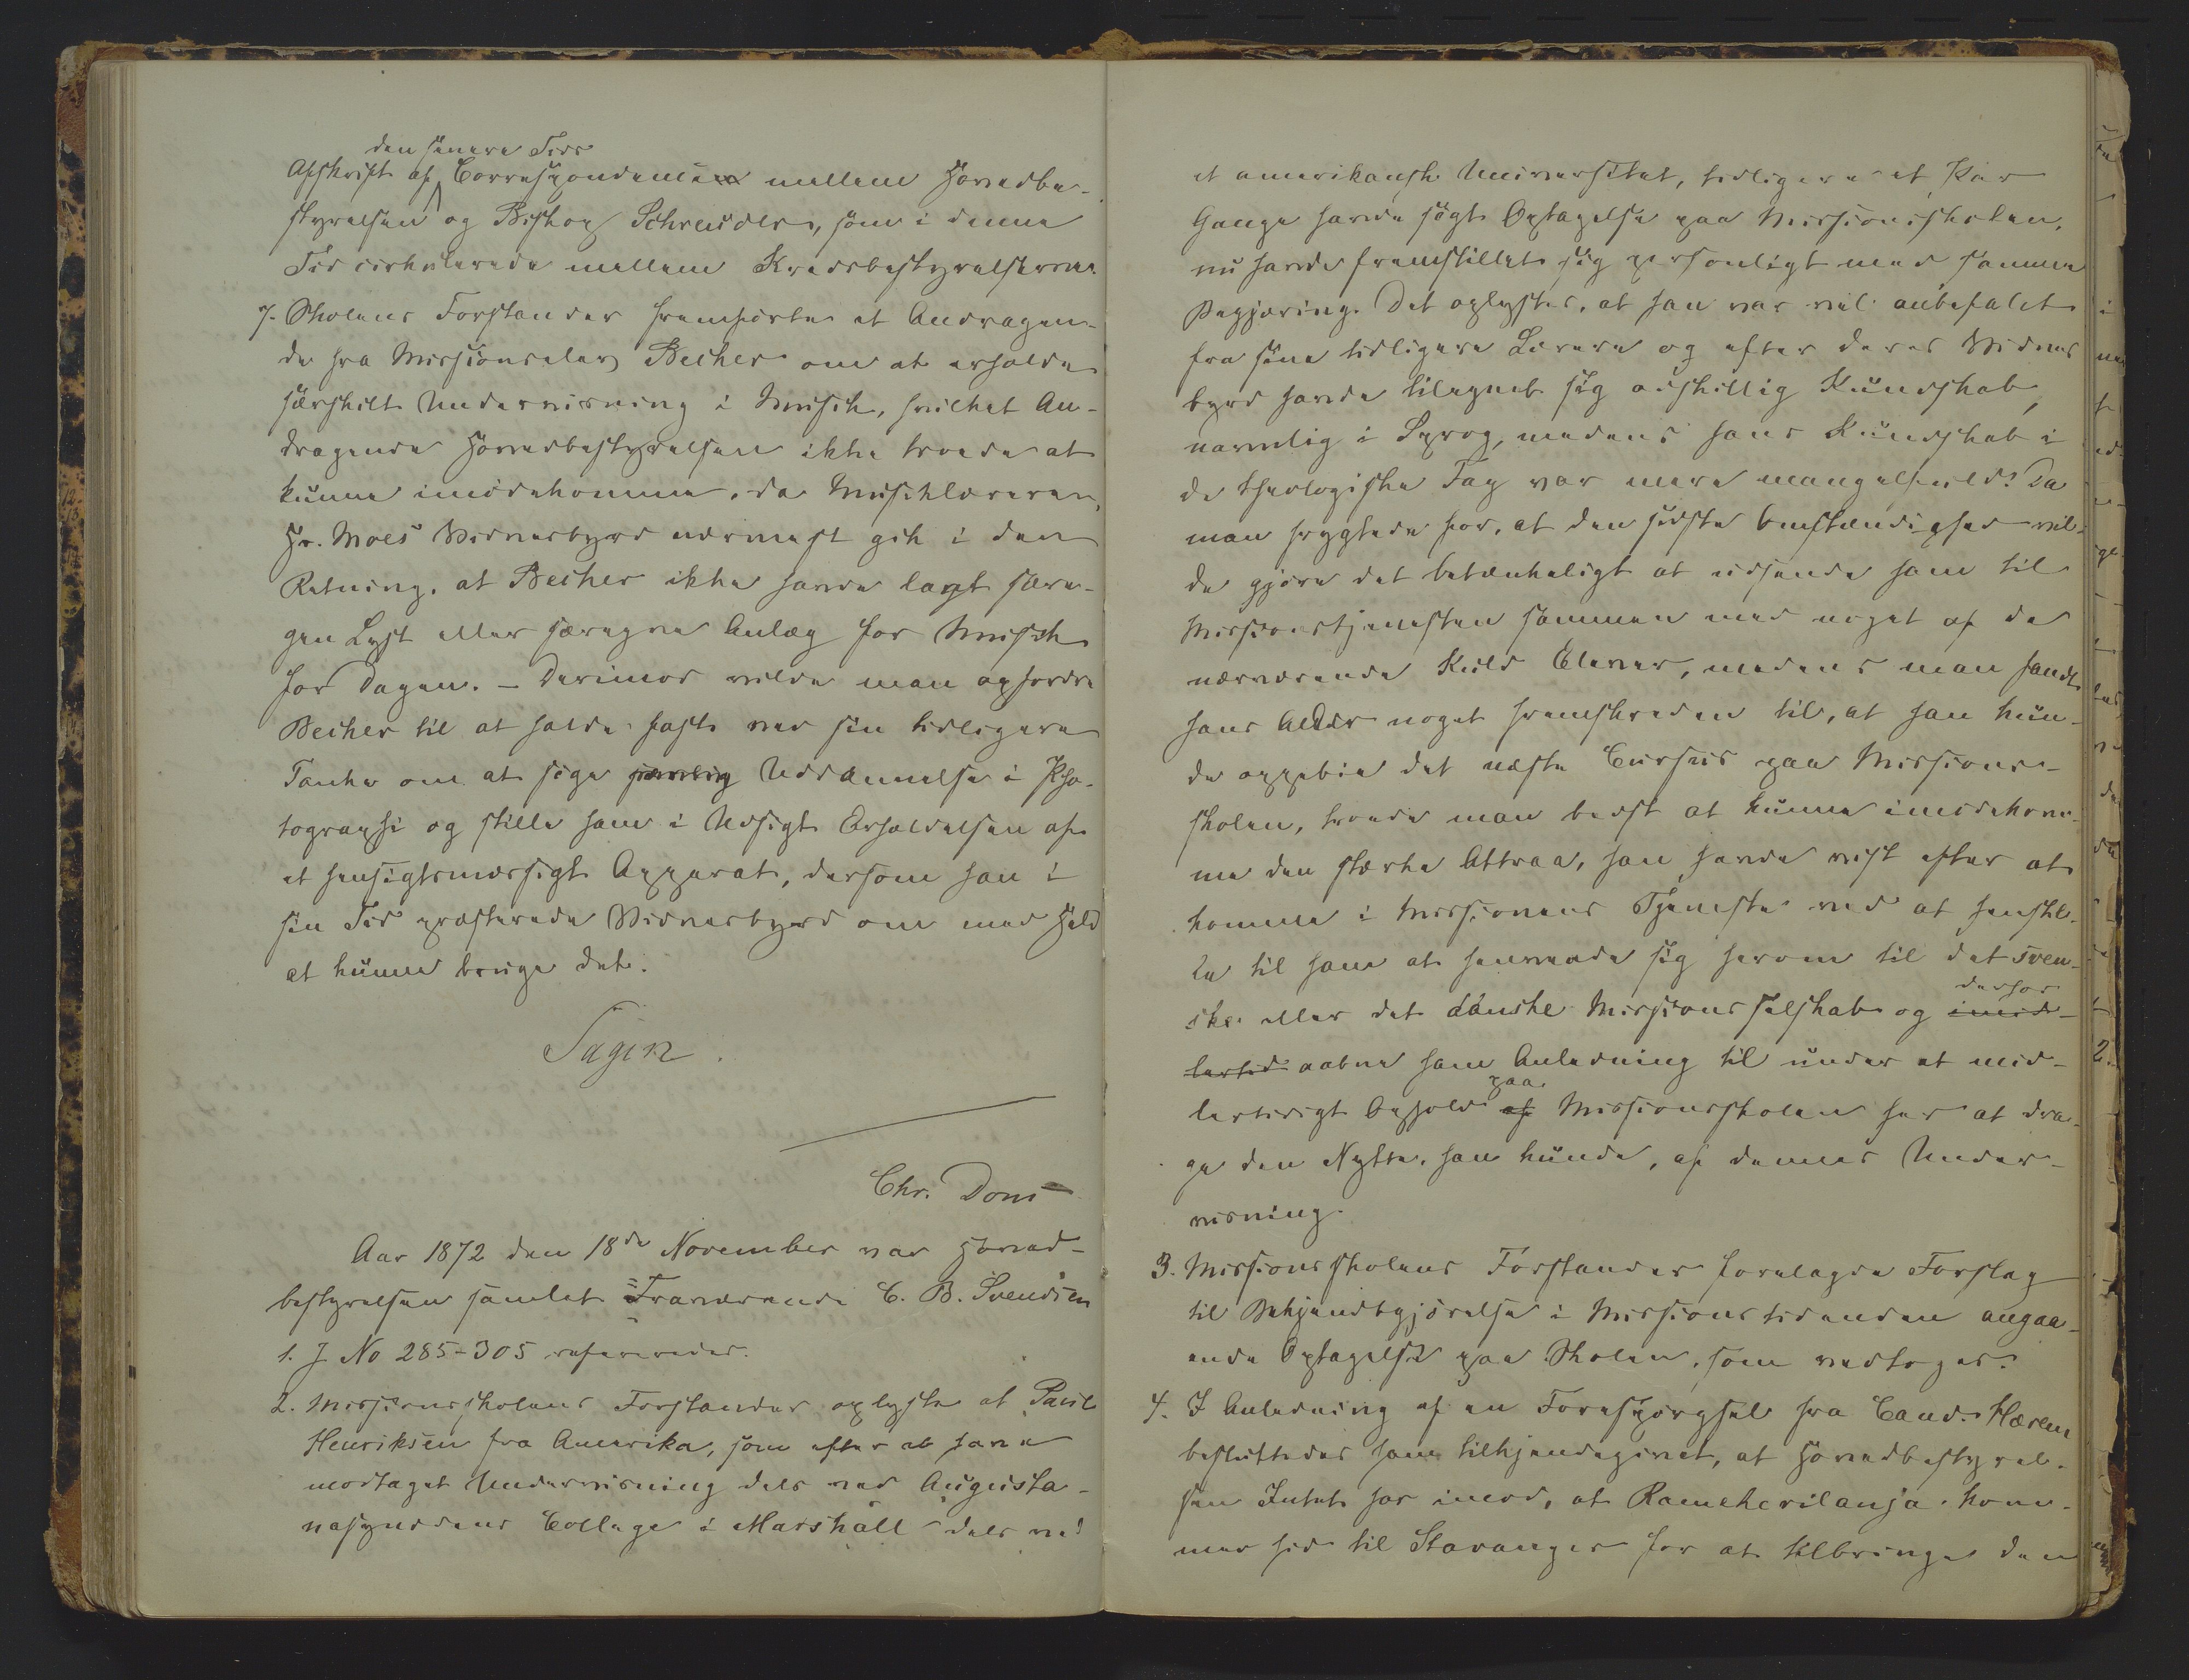 den senere Tids
Afskrift af Correspondencen mellem Hovedbe-
styrelsen og Biskop Schreuder, som i denne
Tid cirkulerede mellem Kredsbestyrelserne.
7. Skolens Forstander fremførte et Andragen-
de fra Missionselev Becher om at erholde
særskilt Undervisning i Musik, hvilket An-
dragende Hovedbestyrelsen ikke troede at
kunne imødekomme, da Musiklæreren,
Hr. Moes Vidnesbyrd nærmest gik i den
Retning, at Becher ikke havde lagt sær-
gen Lyst eller særegne Anlæg for Musik
for Dagen. – Derimod vilde man opfordre
Becher til at holde fast ved sin tidligere
Tanke om at søge Uddannelse i Pho-
tographi og stille ham i Udsigt Erholdelsen af
et hensigtsmæssigt Apparat, dersom han i
sin Tid præsterede Vidnesbyrd om med Held
at kunne bruge det.
Sagen.
Chr. Dons
Aar 1872 den 18de November var Hoved-
bestyrelsen samlet Fraværende C. B. Svendsen
1. J No 285-305 refereredes.
2. Missionsskolens Forstander oplyste at Paul
Henriksen fra Amerika, som efter at have
modtaget Undervisning dels ved Augusta-
nasynodens College i Marshall dels ved
et amerikansk Universitet, tidligere et Par
Gange havde søgt Optagelse paa Missionsskolen,
nu havde fremstillet sig personligt med samme
Begjæring. Det oplystes, at han var vel anbefalet
fra sine tidligere Lærere og efter deres Vidnes
byrd havde tilegnet sig adskillig Kundskab,
navnlig i Sprog, medens hans Kundskab i
de theologiske Fag var mere mangelfuld. Da
man frygtede for, at den sidste Omstændighed vil-
de gjøre det betænkeligt at udsende ham til
Missionstjenesten sammen med noget af de
nærværende Kuld Elever, medens man fandt
hans Alder noget fremskreden til, at han kun-
de oppebie det næste Cursus paa Missions-
skolen, troede man bedst at kunne imødekom-
me den stærke Attraa, han havde vist efter at
komme i Missionens Tjeneste ved at henstil-
le til ham at henvende sig herom til det sven-
derfor
ske eller det danske Missionsselskab og imid-
lertid aabne ham Anledning til under et mid-
paa
lertidigt Ophold af Missionsskolen her at dra-
ge den Nytte, han kunde, af dennes Under-
visning.
3. Missionsskolens Forstander forelagde Forslag
til Bekjendtgjørelse i Missionstidenden angaa-
ende Optagelse paa Skolen, som vedtoges.
4. I Anledning af en Forespørgsel fra Cand. Hærem
besluttedes ham tilkjendegivet, at Hovedbestyrel-
sen Intet har imod, at Rameherilanja kom-
mer hid til Stavanger for at tilbringe den